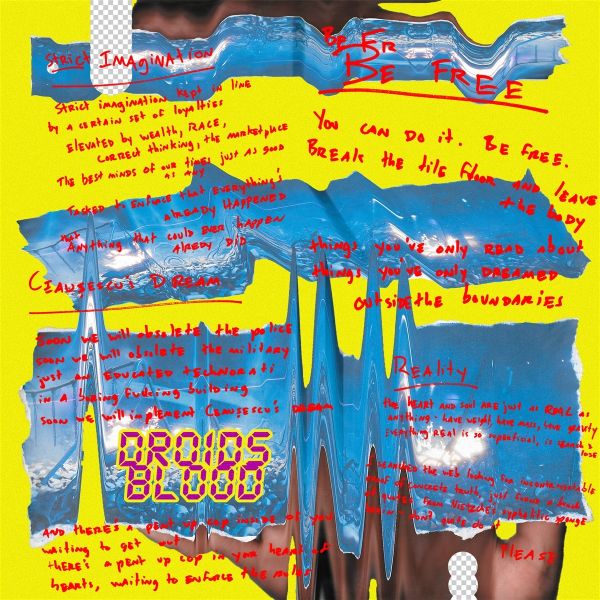 Strict Imagination
Strict imagination kept in line
by a certain set of loyalties
Elevated by wealth, race,
correct thinking, the marketplace
The best minds of our times just as good
as any
Tasked to enforce that everything's
already happened
that
Anything that could ever happen
alredy did
Ceausescu's Dream
Soon we will obsolete the police
soon we will obsolete the military
just an educated technorati
in a boring fucking building
soon we will implement Ceausescu's dream
DROIDS
BLOOD
And there's a pent up cop inside of you
waiting to get out
there's a pent up cop in your heart of
hearts, waiting to enforce the rules
Be Fr
Be Free
You can do it. Be free.
Break the tile floor and leave
the body
things you've only read about
things you've only dreamed
outside the boundaries
Reality
the heart and soul are just as real as
anything - have weight, have mass, have gravity
Everything real is so superficial, is
lose
I searched the web looking for incontrovertible
proof of concrete truth, just found a
of quotes from Nietzche's syphilitic sponge
don't quite do it
Please